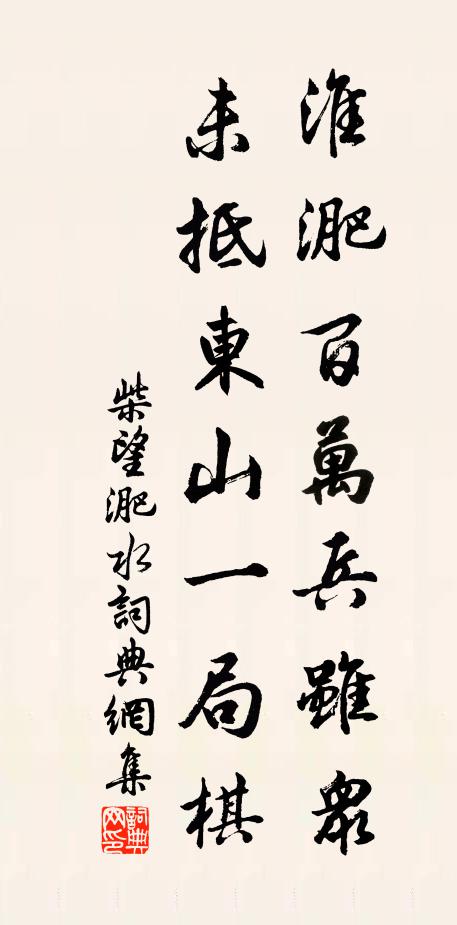 淮淝百萬兵雖眾
未抵東山一局棋
柴望淝水詞典網集
詞典網印